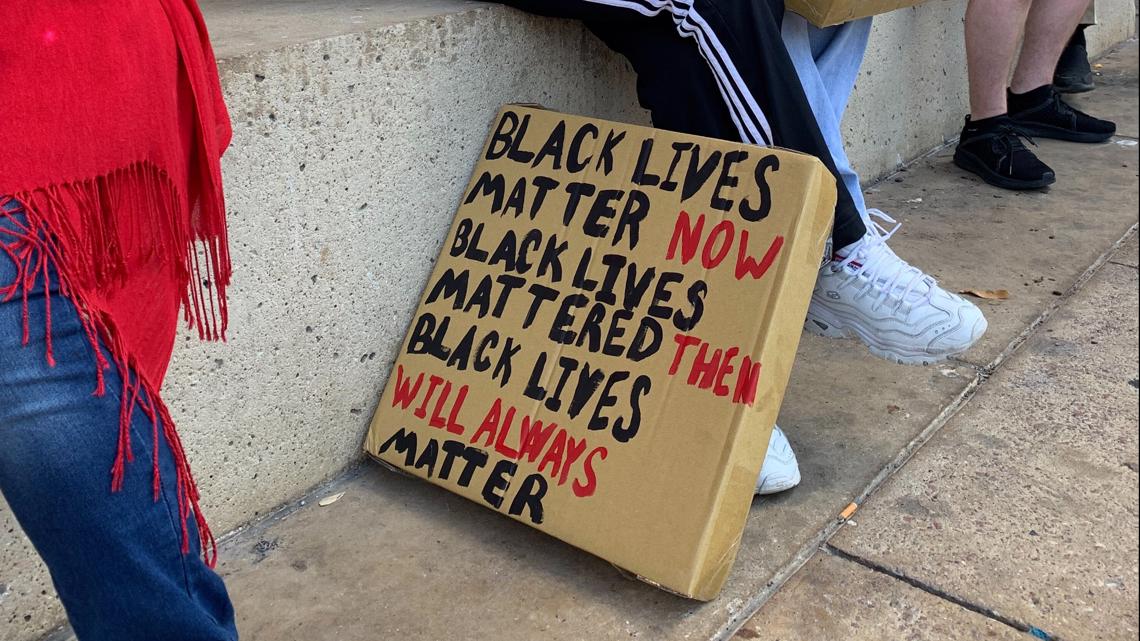 BLACK LIVES
MATTER NOW
BLACK LIVES
MATTERED THEN
BLACK LIVES
WILL ALWAYS
MATTER